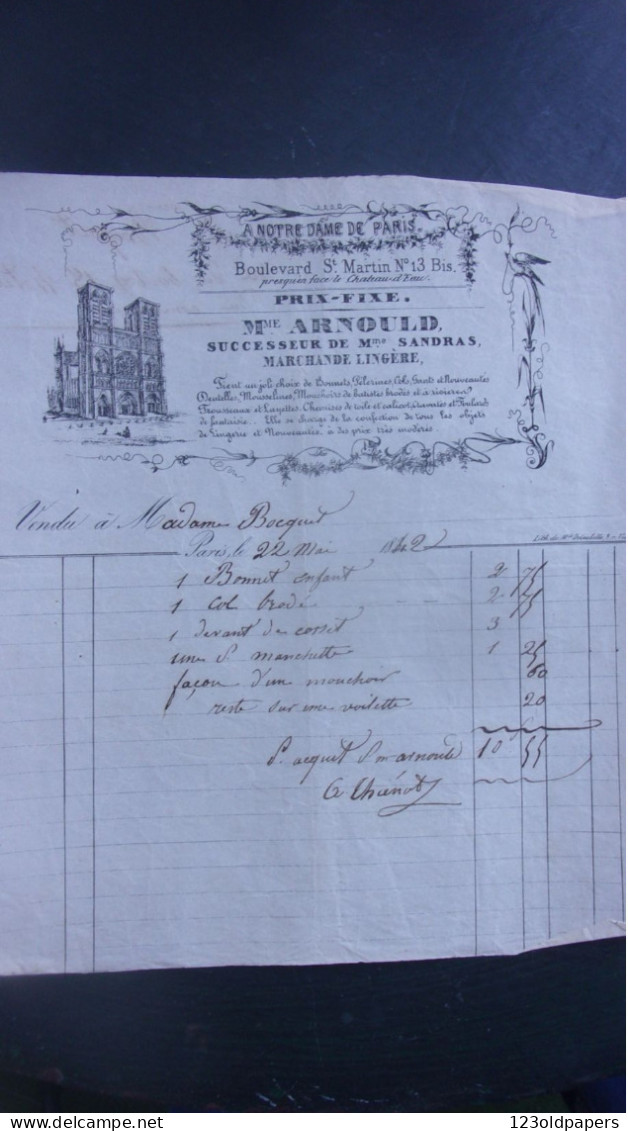 A NOTRE DAME DE PARIS.
Boulevard St. Martin No. 13 Bis.
presqu'en face le Chateau-d'Eau.
PRIX-FIXE.
Mme ARNOULD,
SUCCESSEUR DE Mme SANDRAS,
MARCHANDE LINGÈRE,
Tient un joli choix de Bonnets, Pélerines, Col, Gants et Nouveautés
Dentelles, Mousselines, Mouchoirs de batistes brodés et à rivières,
Trousseaux et Layettes, Chemises de toile et calicot, Cravates et Foulards
de fantaisie. Elle se charge de la confection de tous les objets
de Lingerie et Nouveautés, à des prix très modérés.
Vendu à Madame Bocquet
Lith. de
Paris, le 22 Mai 1842
1 Bonnet enfant 2 75
1 Col brodé 2 75
1 devant de corset 3
une P. manchette 1 25
façon d'un mouchoir 60
reste sur une voilette 20
P. acquit Pr arnould 10 55
C Thiénot
123oldpapers